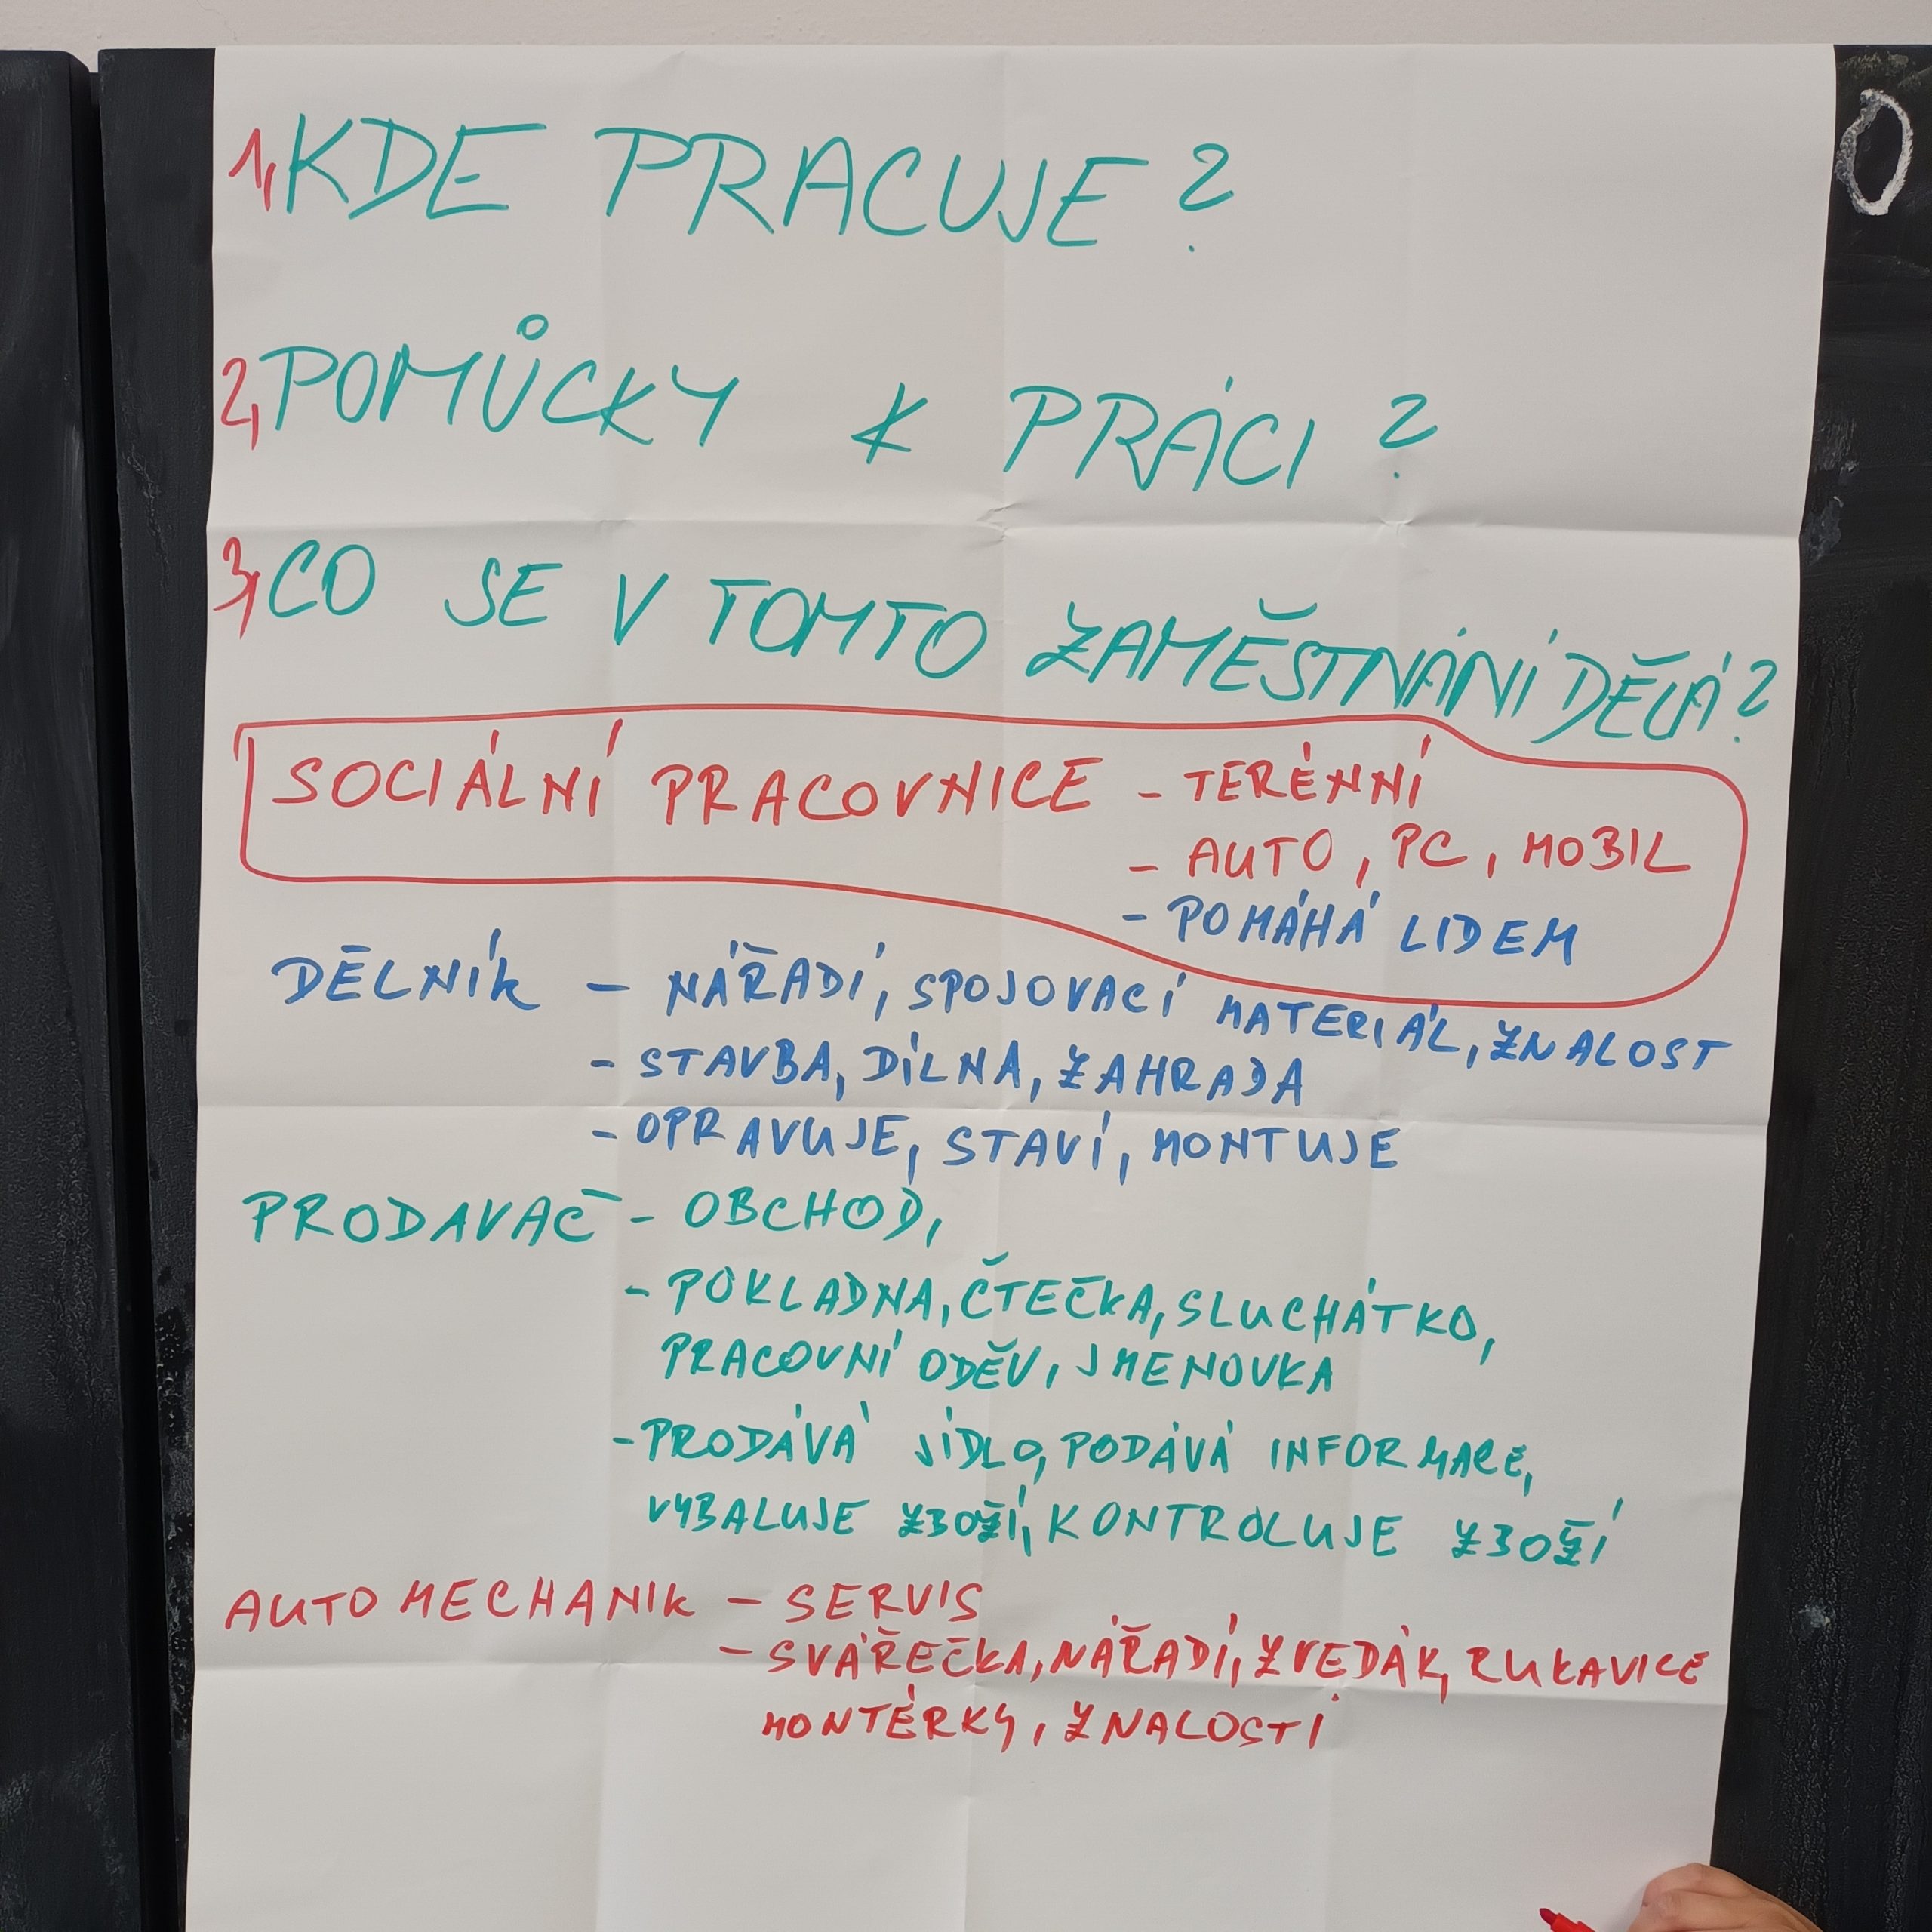 1, KDE PRACUJE?
2, POMŮCKY K PRÁCI?
3, CO SE V TOMTO ZAMĚSTNÁNÍ DĚLÁ?
SOCIÁLNÍ PRACOVNICE - TERÉNNÍ
- AUTO, PC, MOBIL
- POMÁHÁ LIDEM
DĚLNÍK - NÁŘADÍ, SPOJOVACÍ MATERIÁL, ZNALOST
- STAVBA, DÍLNA, ZAHRADA
- OPRAVUJE, STAVÍ, MONTUJE
PRODAVAČ - OBCHOD,
- POKLADNA, ČTEČKA, SLUCHÁTKO,
PRACOVNÍ ODĚV, JMENOVKA
- PRODÁVÁ JÍDLO, PODÁVÁ INFORMACE,
VYBALUJE ZBOŽÍ, KONTROLUJE ZBOŽÍ
AUTOMECHANIK - SERVIS
- SVÁŘEČKA, NÁŘADÍ, ZVEDÁK, RUKAVICE
MONTÉRKY, ZNALOSTI